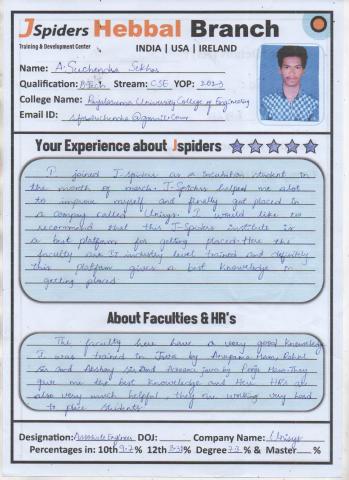 JSpiders Hebbal Branch
Training & Development Center
INDIA | USA | IRELAND
Name: A. Suchendra Sekhar
Qualification: B.Tech Stream: CSE YOP: 2023
College Name: University College of Engineering
Email ID:
Your Experience about Jspiders
I joined J-spiders as a incubation student in
the month of march. J-Spiders helped me alot
to improve myself and finally got placed in
a company called Unisys. I would like to
recommend that this J-Spiders institute is
a best platform for getting placed. Here the
faculty are IT industry level trained and definitly
this platform gives a best knowledge in
getting placed
About Faculties & HR's
The faculty here have a very good knowledge
I was trained in Java by Anupama Mam, Rahul
Sir and Akshay Sir and Advance Java by Pooja Mam. They
give me the best knowledge and Here HR's are
also very much helpful they are working very hard
to place students
Designation: Associate Engineer DOJ: Company Name: Unisys
Percentages in: 10th % 12th % Degree % & Master %